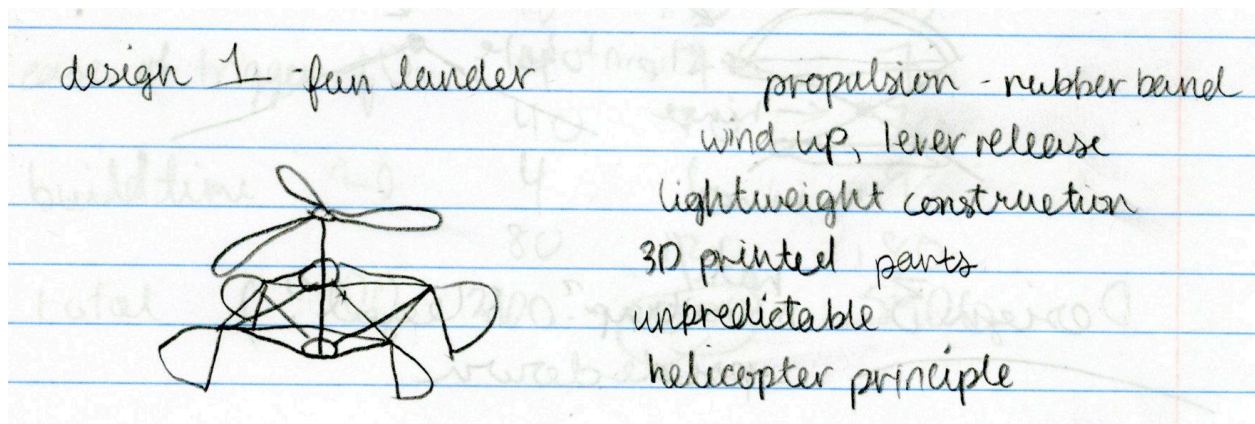 design 1 - fan lander
propulsion - rubber band
wind up, lever release
lightweight construction
3D printed parts
unpredictable
helicopter principle